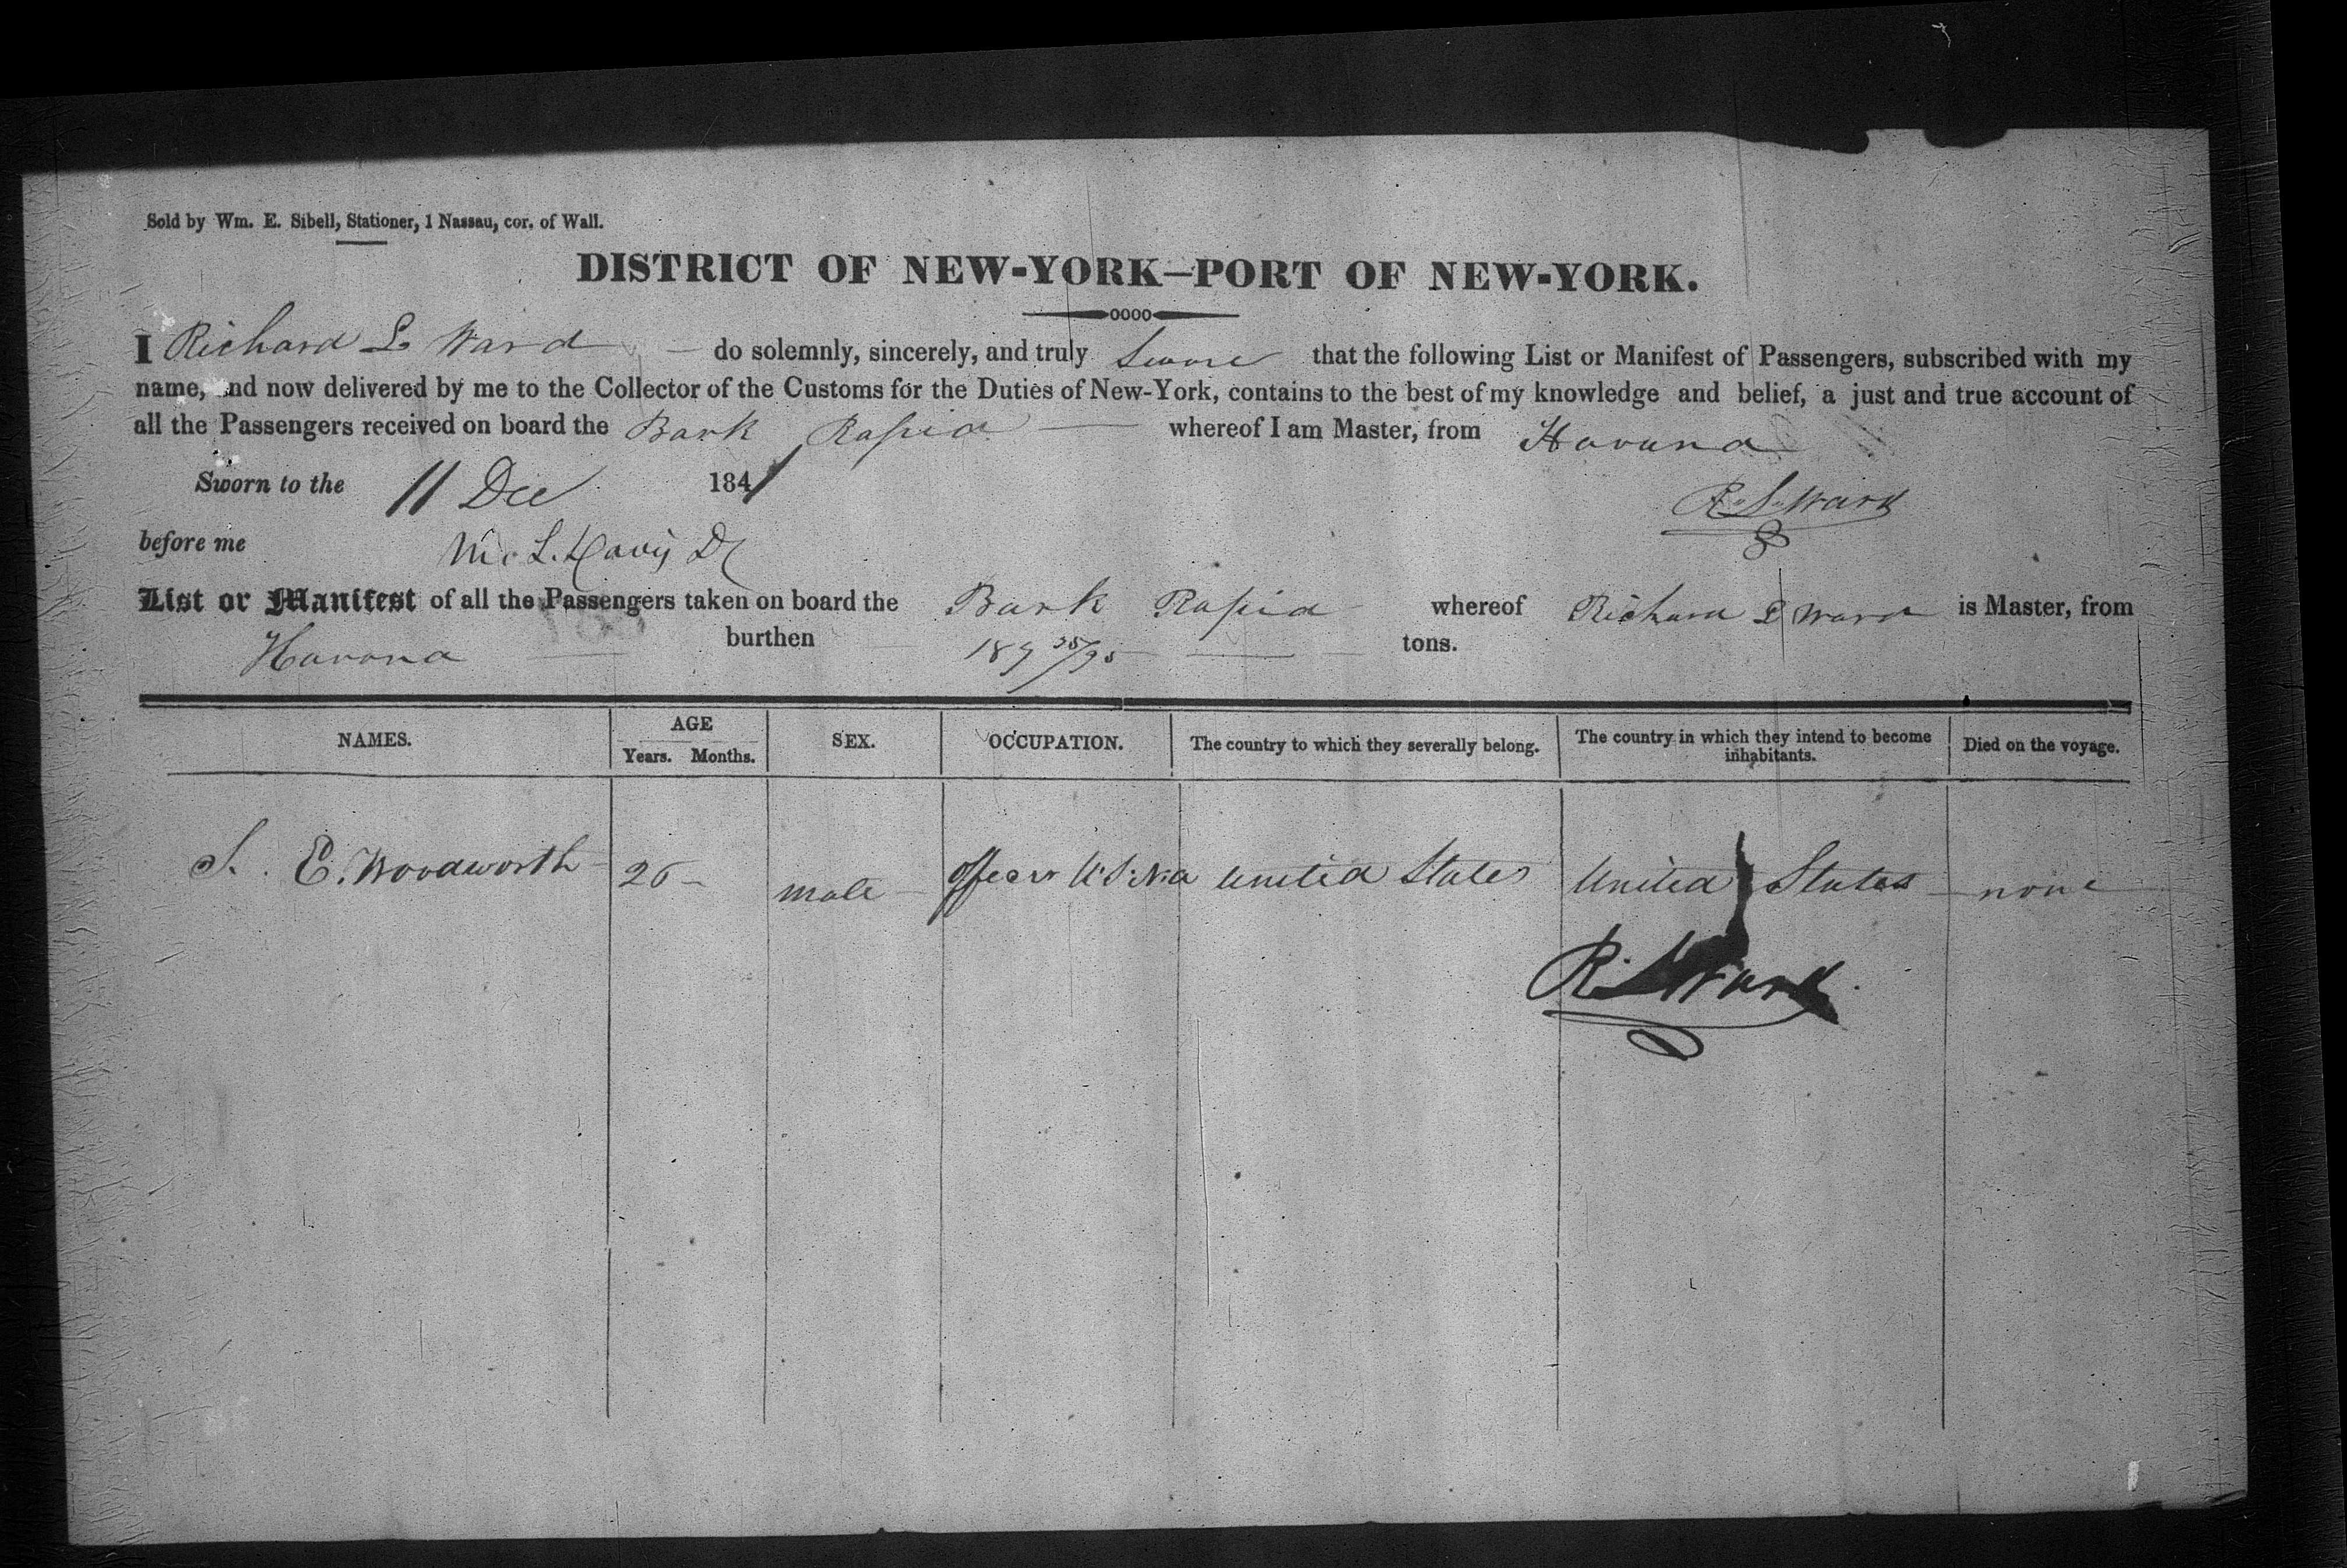 Sold by Wm. E. Sibell, Stationer, 1 Nassau, cor. of Wall.
DISTRICT OF NEW-YORK—PORT OF NEW-YORK.
I Richard L Ward do solemnly, sincerely, and truly Swore that the following List or Manifest of Passengers, subscribed with my
name, and now delivered by me to the Collector of the Customs for the Duties of New-York, contains to the best of my knowledge and belief, a just and true account of
all the Passengers received on board the Bark Rapid whereof I am Master, from Havana
Sworn to the 11 Dec 1841
R. L. Ward
before me M. L. Davis
List or Manifest of all the Passengers taken on board the Bark Rapid whereof Richard L Ward is Master, from
Havana burthen 189 tons.
NAMES. AGE Years. Months. SEX. OCCUPATION. The country to which they severally belong. The country in which they intend to become inhabitants. Died on the voyage.
S. E. Woodworth 26 male officer U.S.Na United States United States none
R. L. Ward